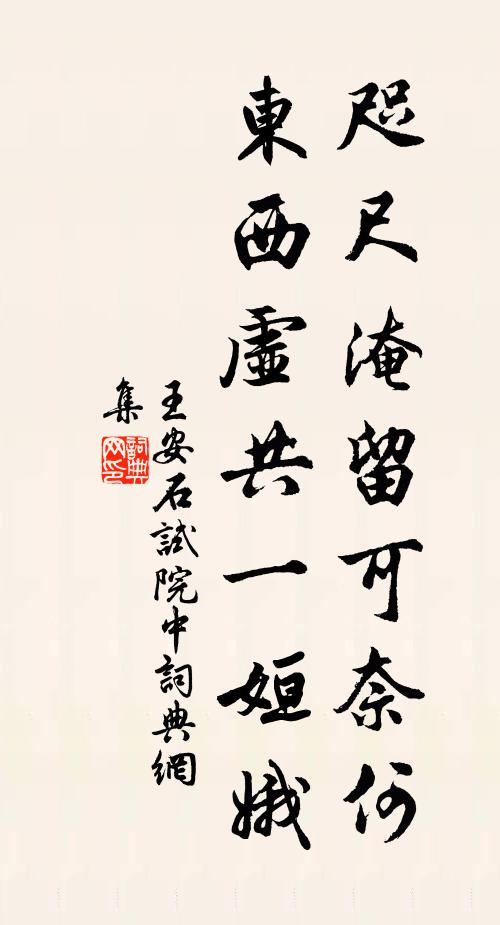 咫尺淹留可奈何
東西虛共一姮娥
王安石試院中詞典網
集
詞典網印